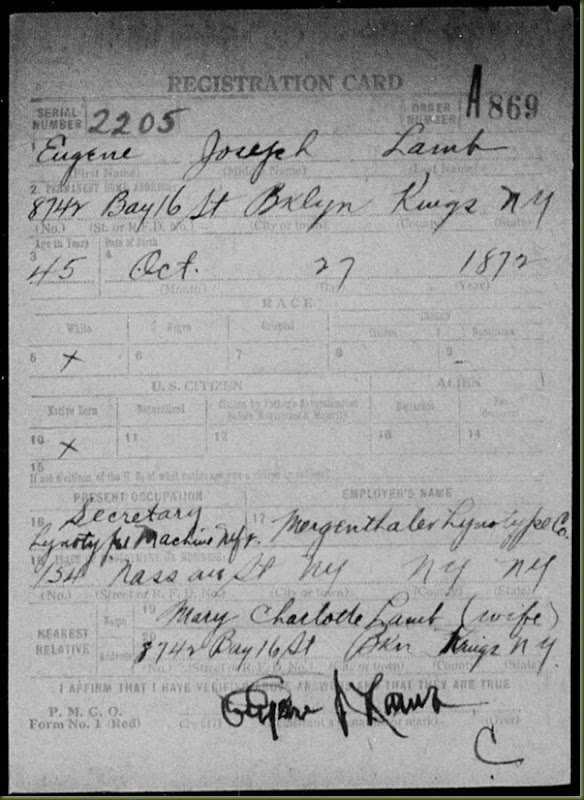 REGISTRATION CARD
SERIAL NUMBER 2205 ORDER NUMBER A869
1 Eugene Joseph Lamb
(First Name) (Middle Name) (Last Name)
2. PERMANENT HOME ADDRESS:
8742 Bay 16 St Bklyn Kings NY
(No.) (St. or R. F. D. No.) (City or town) (County) (State)
Age in Years Date of Birth
3 45 4 Oct. 27 1872
(Month) (Day) (Year)
RACE
White Negro Oriental Indian
Citizen Noncitizen
5 x 6 7 8 9
U. S. CITIZEN ALIEN
Native Born Naturalized Citizen by Father's Naturalization Before Registrant's Majority Declarant Non-declarant
10 x 11 12 13 14
15
If not a citizen of the U. S., of what nation are you a citizen or subject?
PRESENT OCCUPATION EMPLOYER'S NAME
16 Secretary 17 Mergenthaler Lynotype Co.
Lynotype Machine Mfr.
18 PLACE OF EMPLOYMENT OR BUSINESS:
154 Nassau St NY NY NY
(No.) (Street or R. F. D. No.) (City or town) (County) (State)
NEAREST RELATIVE
Name 19 Mary Charlotte Lamb (wife)
Address 20 8742 Bay 16 St Bkn Kings NY
(No.) (Street or R. F. D. No.) (City or town) (County) (State)
I AFFIRM THAT I HAVE VERIFIED ABOVE ANSWERS AND THAT THEY ARE TRUE
P. M. G. O.
Form No. 1 (Red) Eugene J. Lamb
(Registrant's signature or mark) (Over)
C